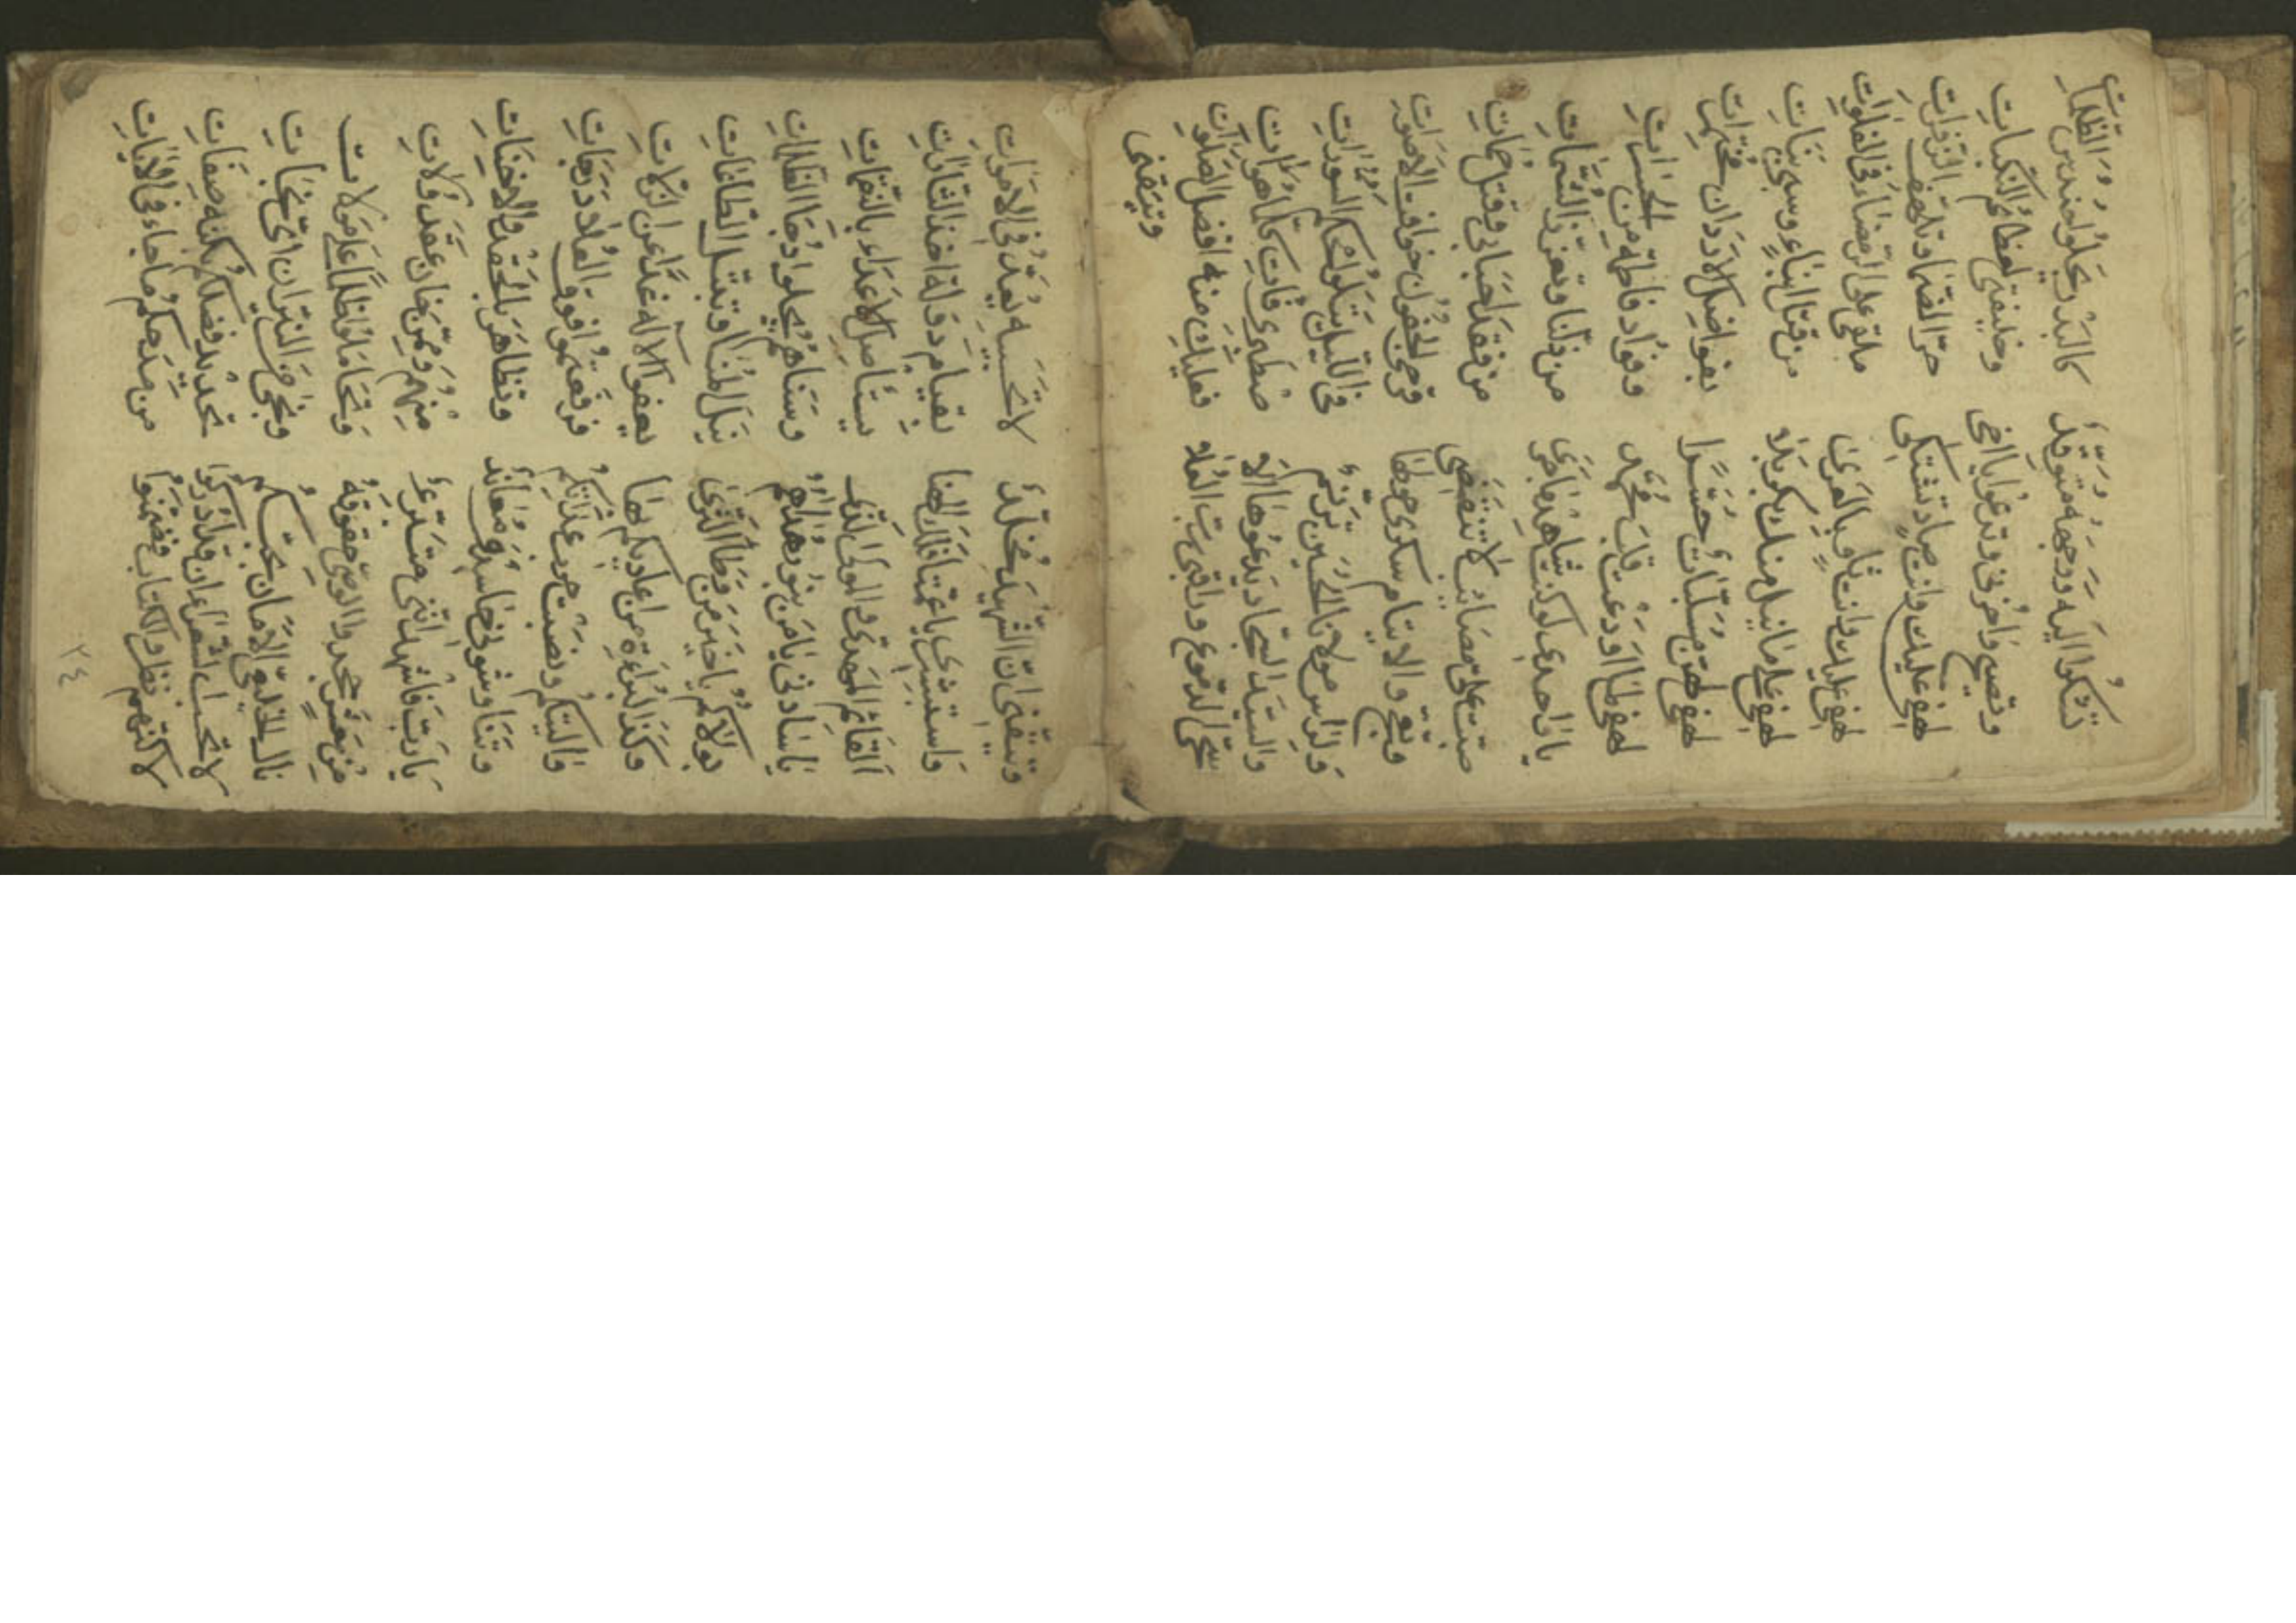 تشكوا اليه ووجهه متوقد كالبدر يجلو حندس الظلمات
وتصيح واحزني وتدعو يا اخي وخليفتي لعظائم النكبات
لهفي عليك وانت صاد تشتكي حر الظما وتلهف الزفرات
لهفي عليك وانت ثاو بالعرى ملقى على الرمضاء في الفلوات
لهفي على ما نيل منك بكربلا من قتل ابناء وسبي بنات
لهفي لهن مسلبات حسرا
لهفي لما اودعت قلب محمد وفؤاد فاطمة من الحسرات
يا واحدي لو كنت شاهد ما جرى من ذلنا وتعزز الشمات
صبت علي مصائب لا تنقضي من فقد احبابي وقتل حمات
والايتام سكرى صوتها قرحى الجفون خوافت الاصوات
ولراس مولاي الحسين ترنم في الليل يتلو محكم السورات
والسيد السجاد يدعوها الا
سحي الدموع وراقبي رب العلا فعليك منه افضل الصلوات
وتيقني
وتيقني ان الشهيد مخلد لا تحسبيه يعد في الاموات
واستبشري يا عمتا فلرهنا بقيام دولة اخذ الثارات
القائم المهدي والمولى الذي يستاصل الاعداء بالنقمات
يا سادتي يا من بنور هداهم وسناهم يجلوا دجا الظلمات
بولاكم يا خير من وطأ الثرى نيل المنا وتقبل الطاعات
وكذا البراءة من اعاديكم بها يعفو الاله غدا عن الزلات
واليتكم ونصبت حرب عداتكم فرقعتموا فوق العلا درجات
وثنا وشوقي حاسد ومعاند وتظاهر بالحقد والاحنات
يا رب فاشهد انني متبرء منهم وممن خان عقد ولات
من بعض مجد والوصي حقوقه وتحاملوا ظلما على مولات
نال الخليعي الامان بحبكم ونجى من النيران اي نجات
لا تحسب الشعراء ان قد ادركوا تحديد فضلكم بكنه صفات
لاكنهم نظروا الكتاب ففهموا من مدحكم ما جاء في الايات
٢٤